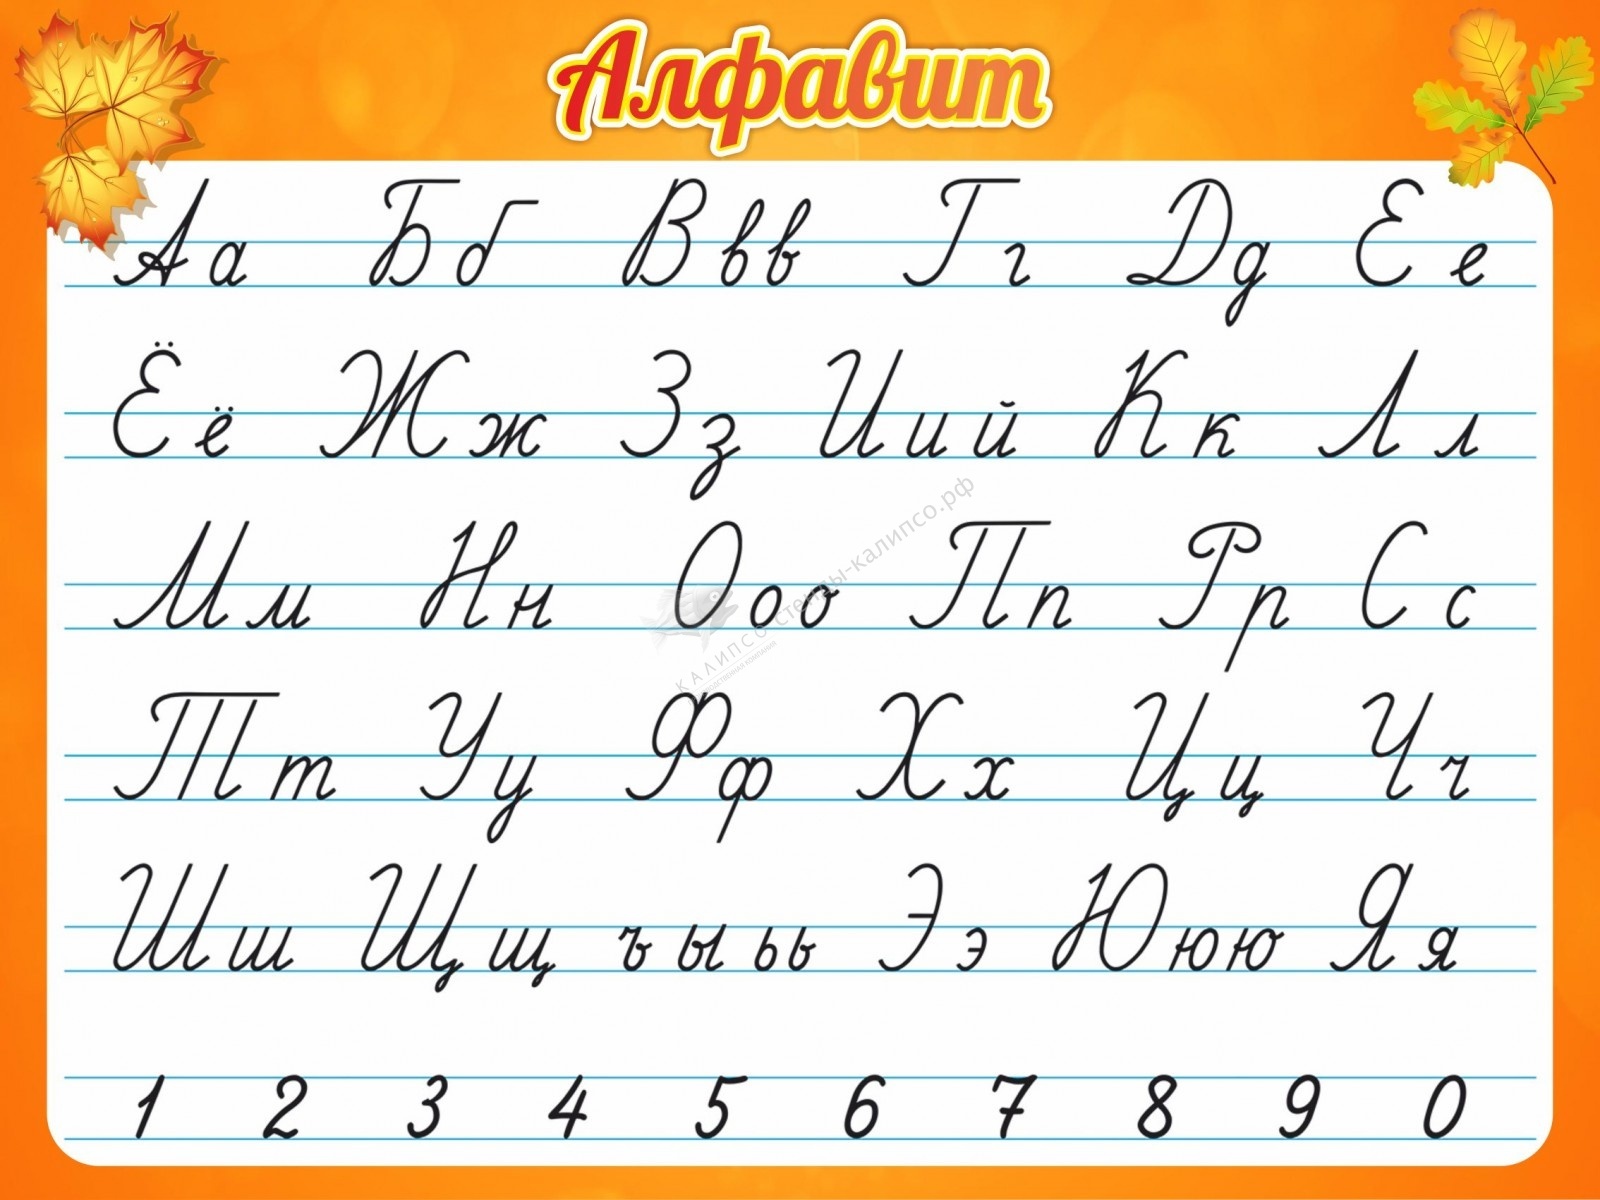 Алфавит
Аа Бб Ввв Гг Дд Ее
Ёё Жж Зз Иий Кк Лл
Мм Нн Ооо Пп Рр Сс
Тт Уу Фф Хх Цц Чч
Шш Щщ ъ ы ьь Ээ Ююю Яя
1 2 3 4 5 6 7 8 9 0
стенды-калипсо.рф
КАЛИПСО